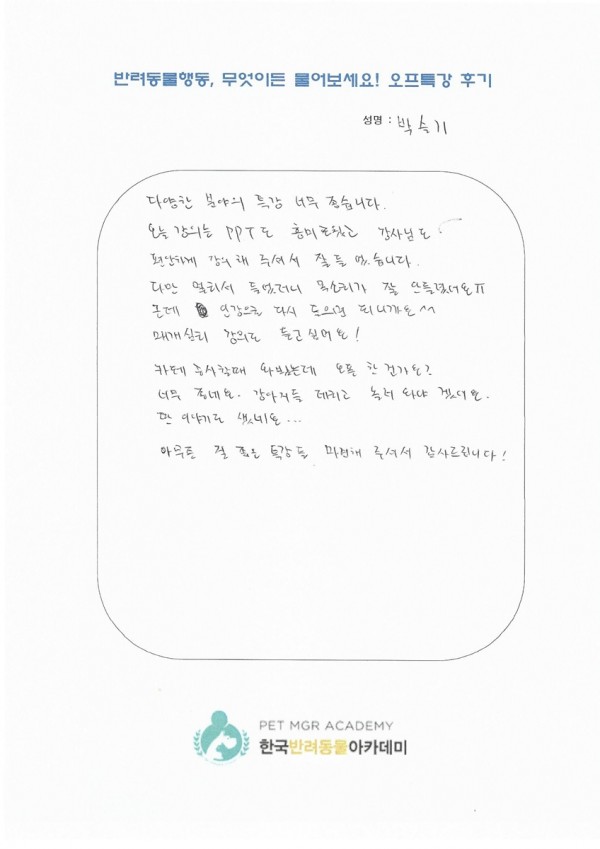 반려동물행동, 무엇이든 물어보세요! 오프특강 후기
성명 : 박슬기
다양한 분야의 특강 너무 좋습니다.
오늘 강의는 PPT도 흥미로웠고 강사님도
편안하게 강의해 주셔서 잘 들었습니다.
다만 멀리서 들었더니 목소리가 잘 안들렸어요ㅠ
근데 인강으로 다시 들으면 되니까요^^
매개심리 강의도 듣고싶어요!
카페 공사할때 와봤는데 오픈 한 건가요?
너무 좋네요. 강아지들 데리고 놀러 와야 겠어요.
딴 이야기로 샜네요...
아무튼 질 좋은 특강을 마련해 주셔서 감사드립니다!
PET MGR ACADEMY
한국반려동물아카데미